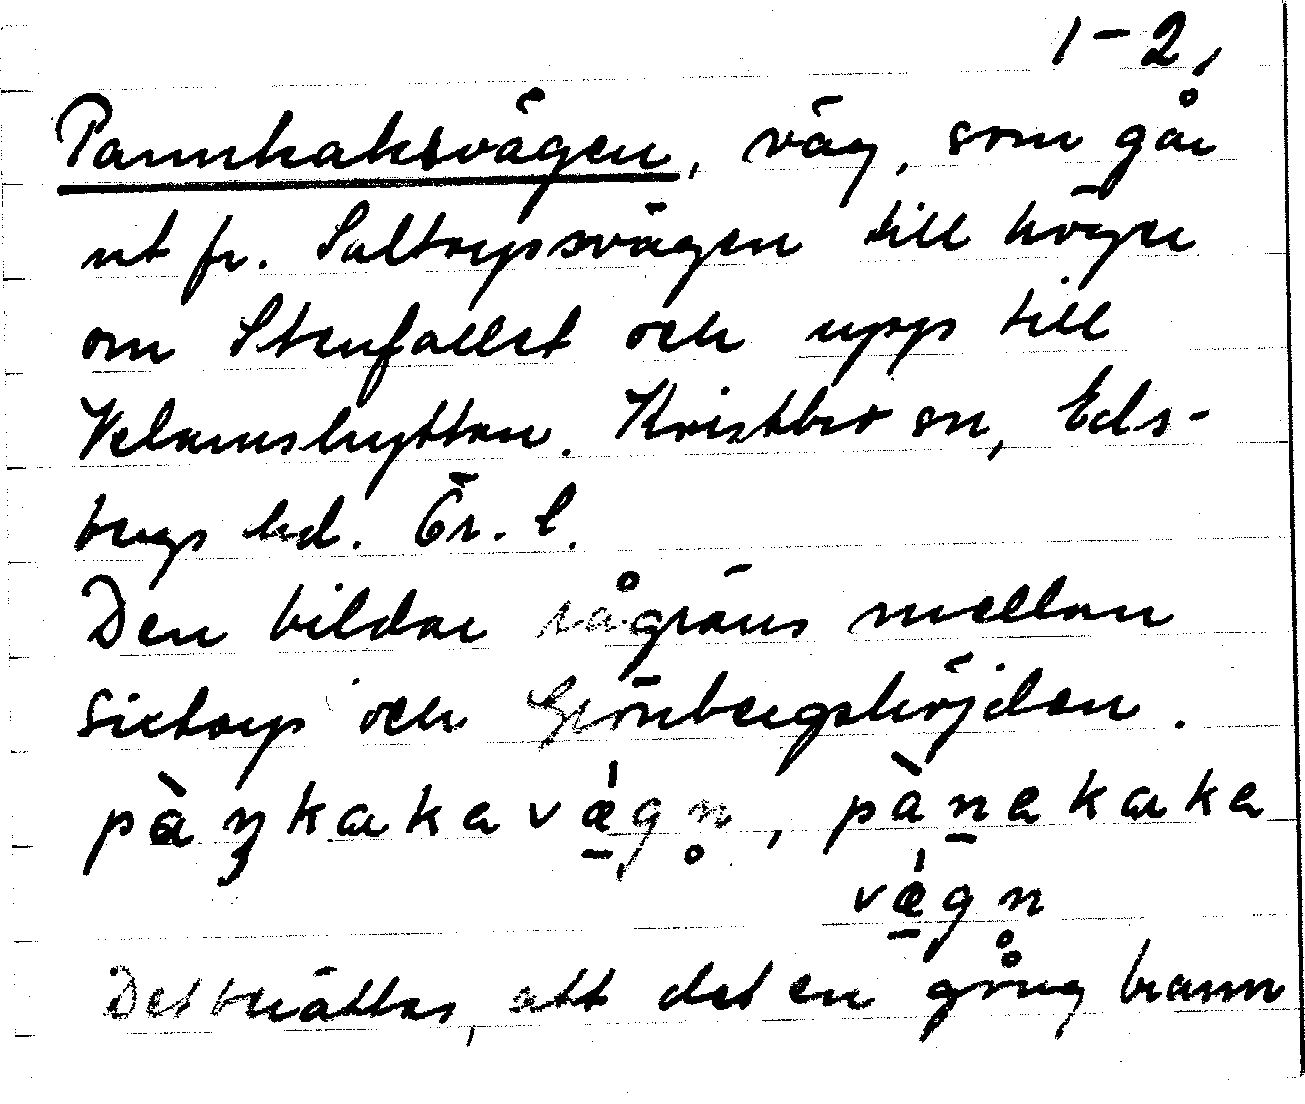 1-2,
Pannkaksvägen, väg, som går
ut fr. Saltorpsvägen till höger
om Stenfallet och upp till
Velamshyttan. Kristbr sn, Eds-
bergs hd. Ör. l.
Den bildar rågräns mellan
Sixtorp och Grönbergshöjden.
pàŋkakavǽgn̥, pànakaka
vǽgn̥
Det berättas, att det en gång brann